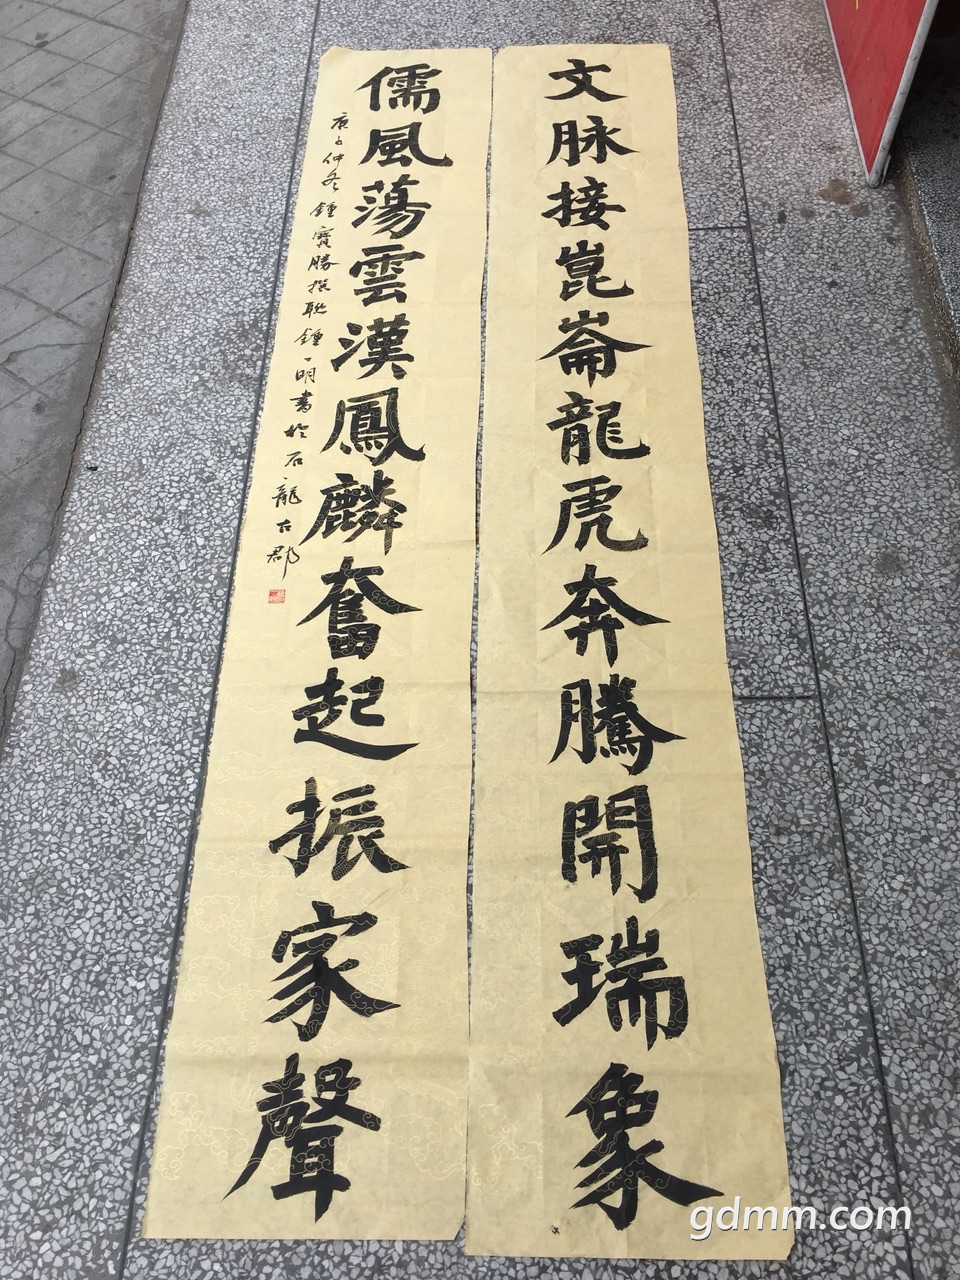 文脉接崑崙龍虎奔騰開瑞象
儒風蕩雲漢鳳麟奮起振家聲
庚子仲冬鍾寶勝撰聯鍾一明書於石龍古郡
gdmm.com